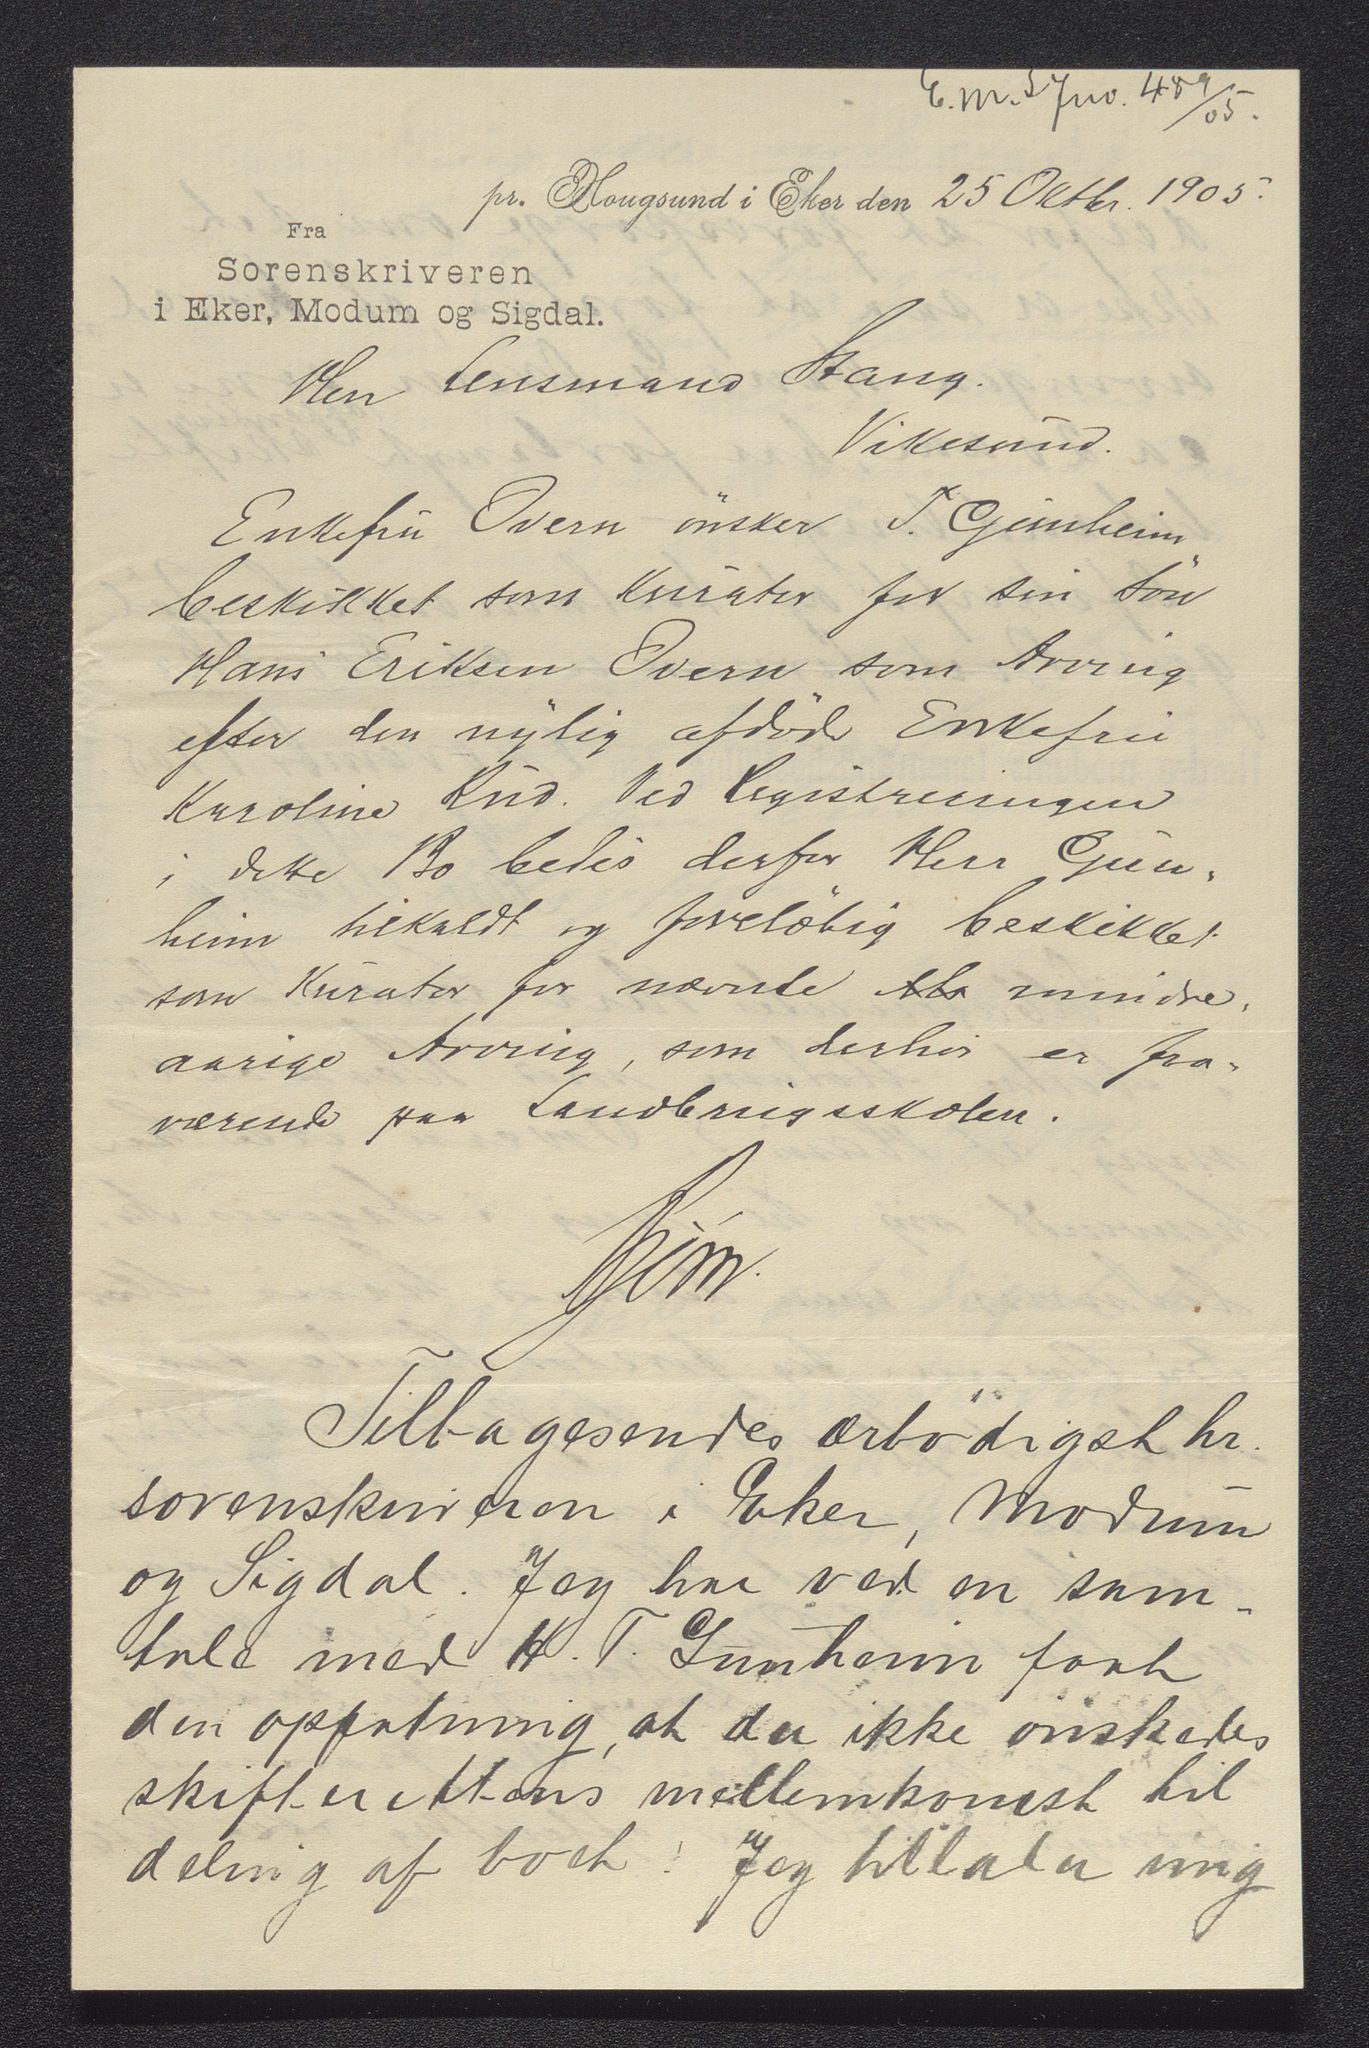 E.M.S Jno. 489/05.
pr. Hougsund i Eker den 25 Oktbr. 1905.
Fra
Sorenskriveren
i Eker, Modum og Sigdal.
Herr Lensmand Stang.
Vikesund.
Enkefru Overn ønsker T. Gunheim
beskikket som Kurator for sin Søn
Hans Eriksen Overn som Arving
efter den nylig afdøde Enkefru
Karoline Rud. Ved Registreringen
i dette Bo bedes derfor Herr Gun-
heim tilkaldt og foreløbig beskikket
som Kurator for nævnte mindre-
aarige Arving, som derhos er fra-
værende paa Landbrugsskolen.
Tilbagesendes ærbödigst hr.
sorenskriveren i Eker, Modum
og Sigdal. Jeg har ved en sam-
tale med H. T. Gunheim faat
den opfatning, at der ikke önskedes
skifterettens mellemkomst til
deling af boet! Jeg tillater mig